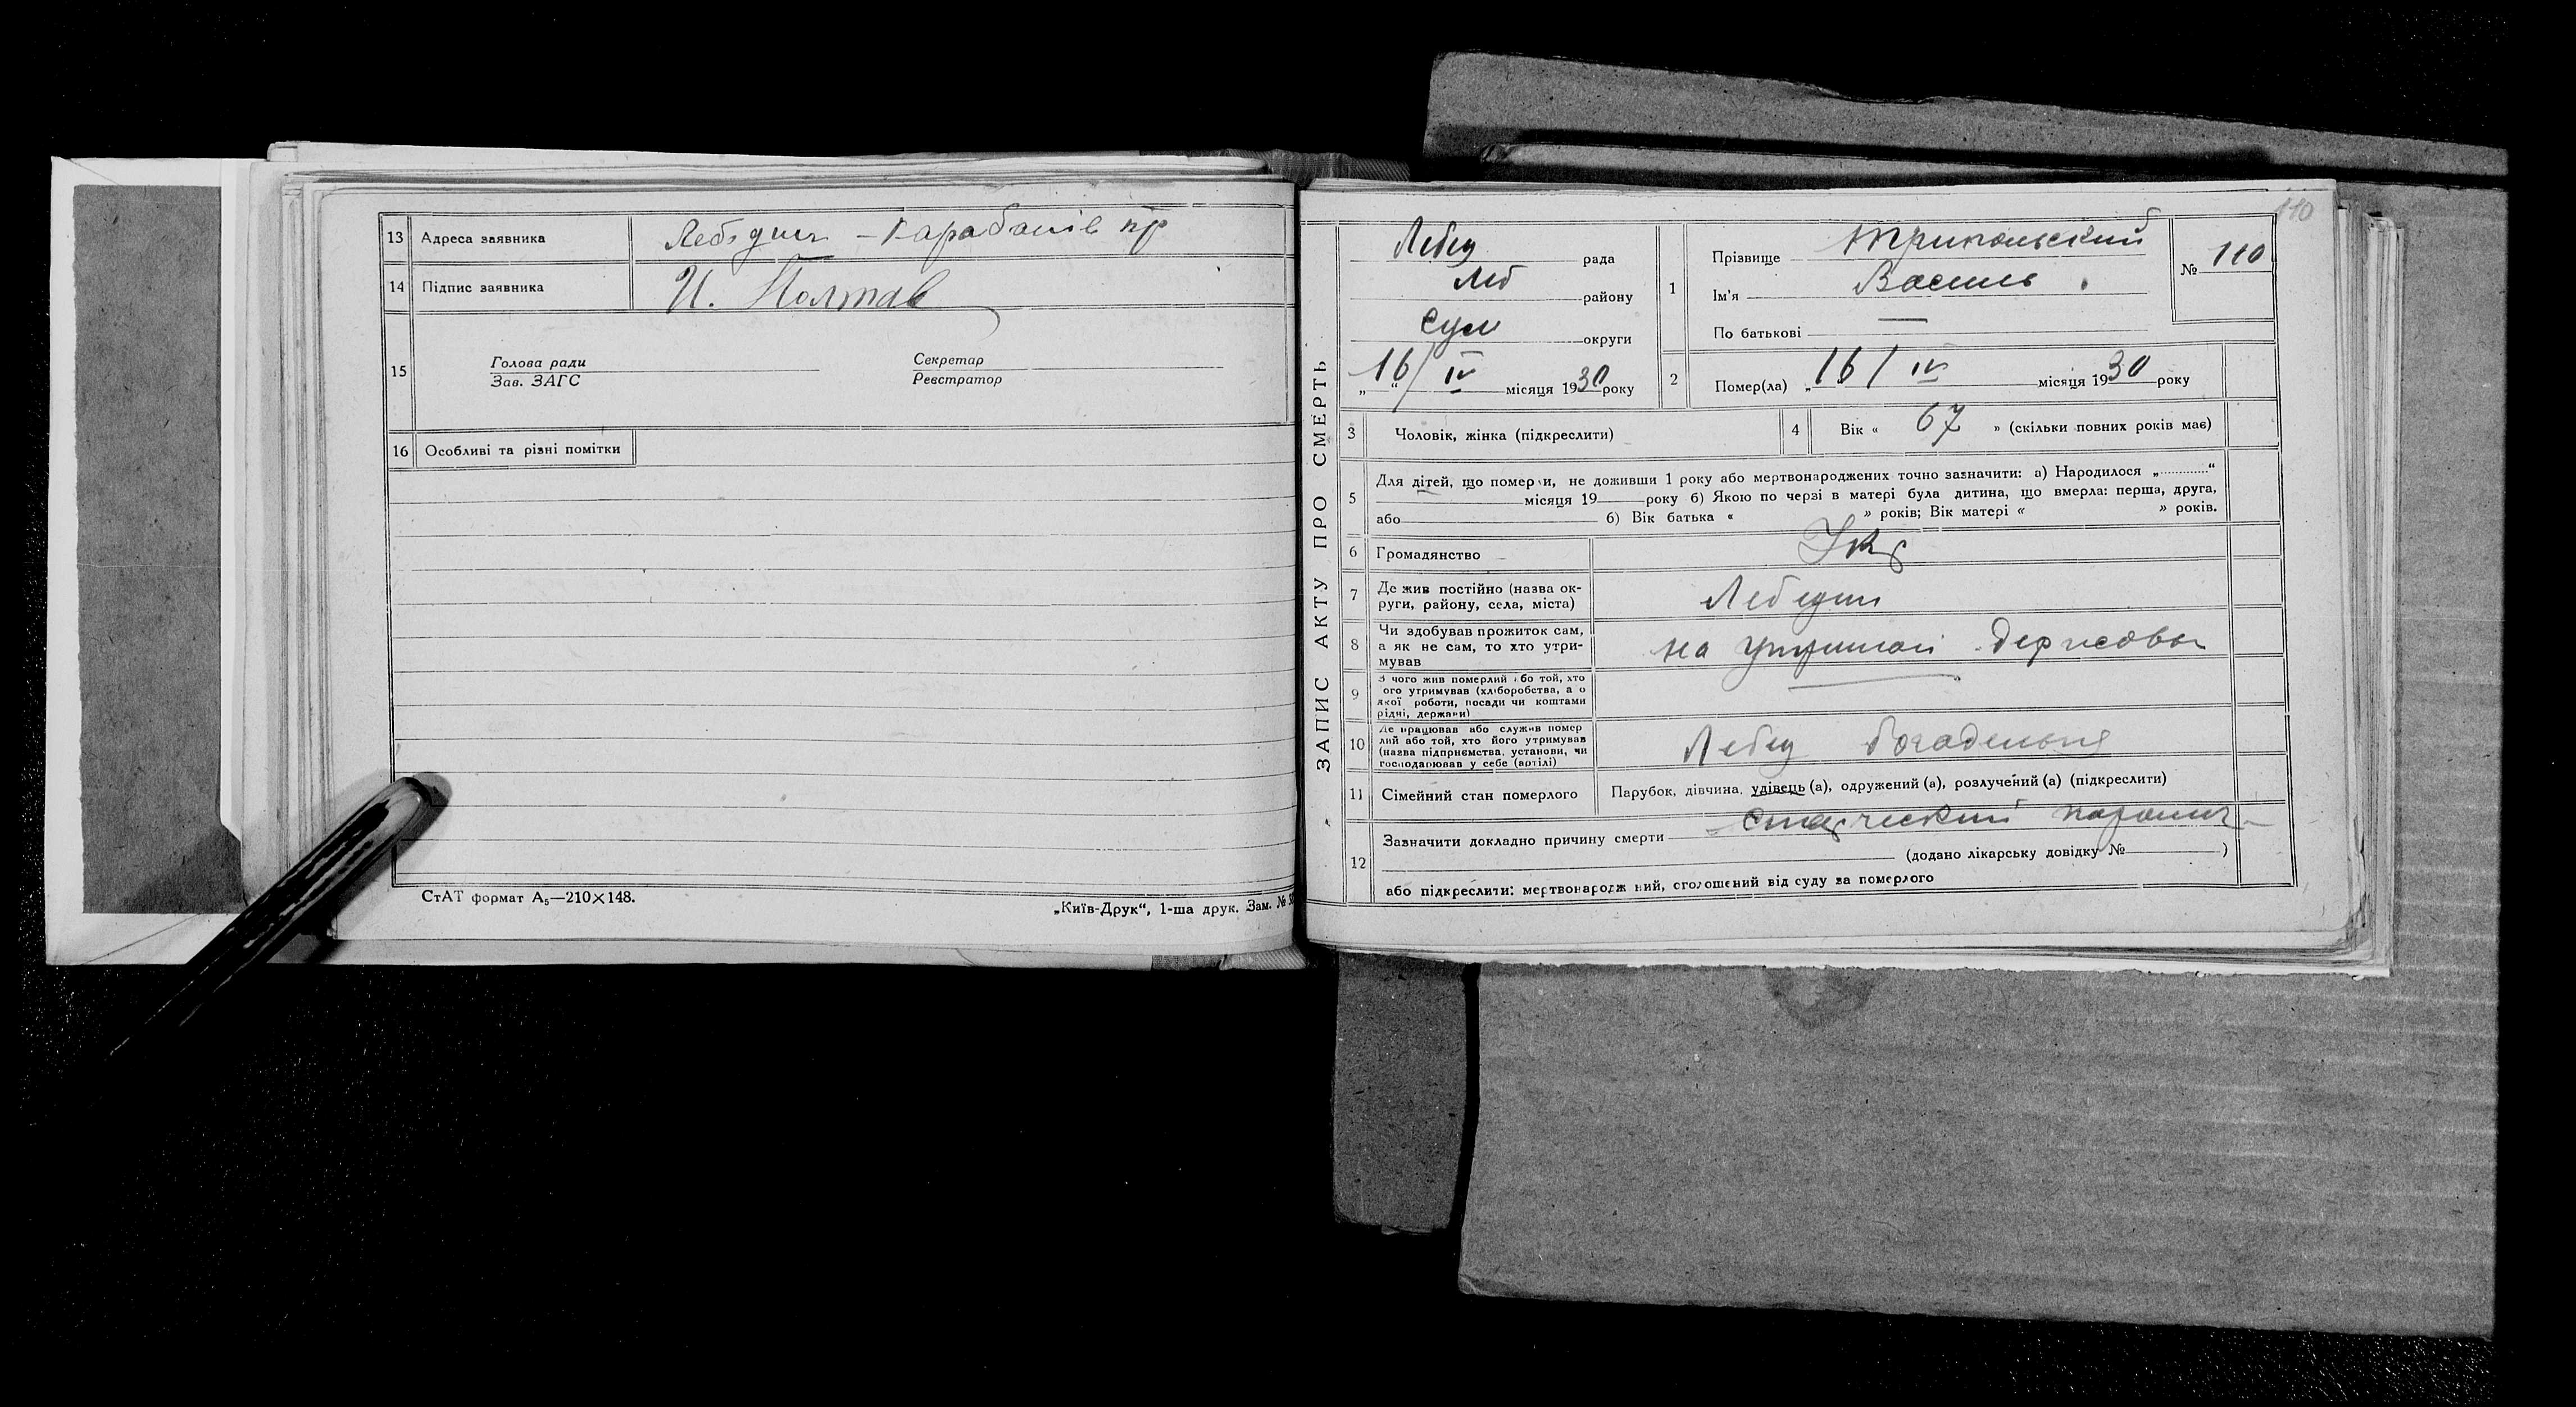 13 Адреса заявника Лебедин – Карабанів пр
14 Підпис заявника И. Полтав
15 Голова ради
Зав. ЗАГС
Секретар
Реєстратор
16 Особливі та різні помітки
СтАТ формат А₅—210×148.
„Київ-Друк“, 1-ша друк. Зам. №
110
ЗАПИС АКТУ ПРО СМЕРТЬ
Лебед рада
Леб району
Сум округи
„16/“ IV місяця 1930 року
1 Прізвище Трипольский
Ім'я Василь
По батькові —
№ 110
2 Помер(ла) „16/ IV місяця 1930 року
3 Чоловік, жінка (підкреслити)
4 Вік « 67 » (скільки повних років має)
5 Для дітей, що померли, не доживши 1 року або мертвонароджених точно зазначити: а) Народилося „............“
місяця 19 року б) Якою по черзі в матері була дитина, що вмерла: перша, друга,
або б) Вік батька « » років; Вік матері « » років.
6 Громадянство Укр
7 Де жив постійно (назва ок-
руги, району, села, міста) Лебедин
8 Чи здобував прожиток сам,
а як не сам, то хто утри-
мував на утриман держави
9 З чого жив померлий або той, хто
його утримував (хліборобства, а о
якої роботи, посади чи коштами
рідні, держави)
10 Де працював або служив помер
лий або той, хто його утримував
(назва підприємства, установи, чи
господарював у себе (артілі) Лебед богадельня
11 Сімейний стан померлого Парубок, дівчина, удівець (а), одружений (а), розлучений (а) (підкреслити)
12 Зазначити докладно причину смерти Старческий паралич
(додано лікарську довідку № )
або підкреслити: мертвонародж ний, оголошений від суду за померлого